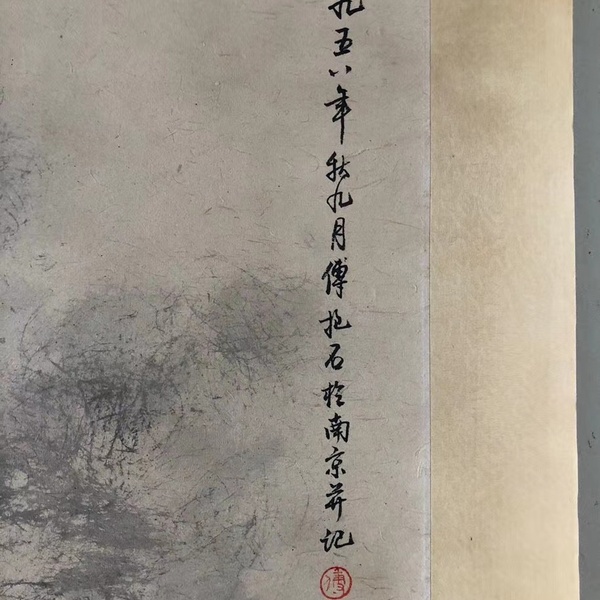 九五八年秋九月傅抱石於南京并记
傅